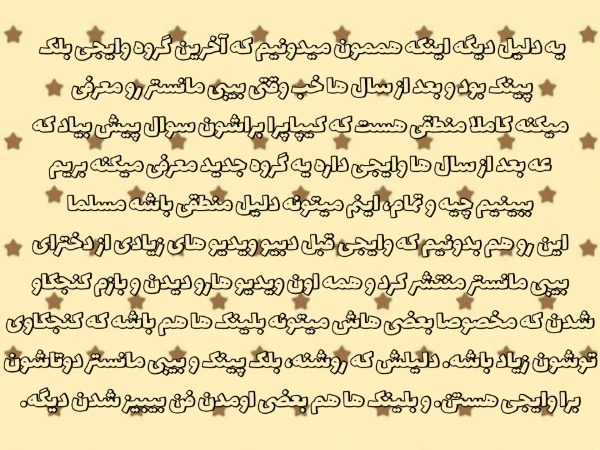 یه دلیل دیگه اینکه هممون میدونیم که آخرین گروه وایجی بلک
پینک بود و بعد از سال ها خب وقتی بیبی مانستر رو معرفی
میکنه کاملا منطقی هست که کیپاپرا براشون سوال پیش بیاد که
عه بعد از سال ها وایجی داره یه گروه جدید معرفی میکنه بریم
ببینیم چیه و تمام، اینم میتونه دلیل منطقی باشه مسلما
این رو هم بدونیم که وایجی قبل دبیو ویدیو های زیادی از دخترای
بیبی مانستر منتشر کرد و همه اون ویدیو هارو دیدن و بازم کنجکاو
شدن که مخصوصا بعضی هاش میتونه بلینک ها هم باشه که کنجکاوی
توشون زیاد باشه. دلیلش که روشنه، بلک پینک و بیبی مانستر دوتاشون
برا وایجی هستن. و بلینک ها هم بعضی اومدن فن بیبیز شدن دیگه.